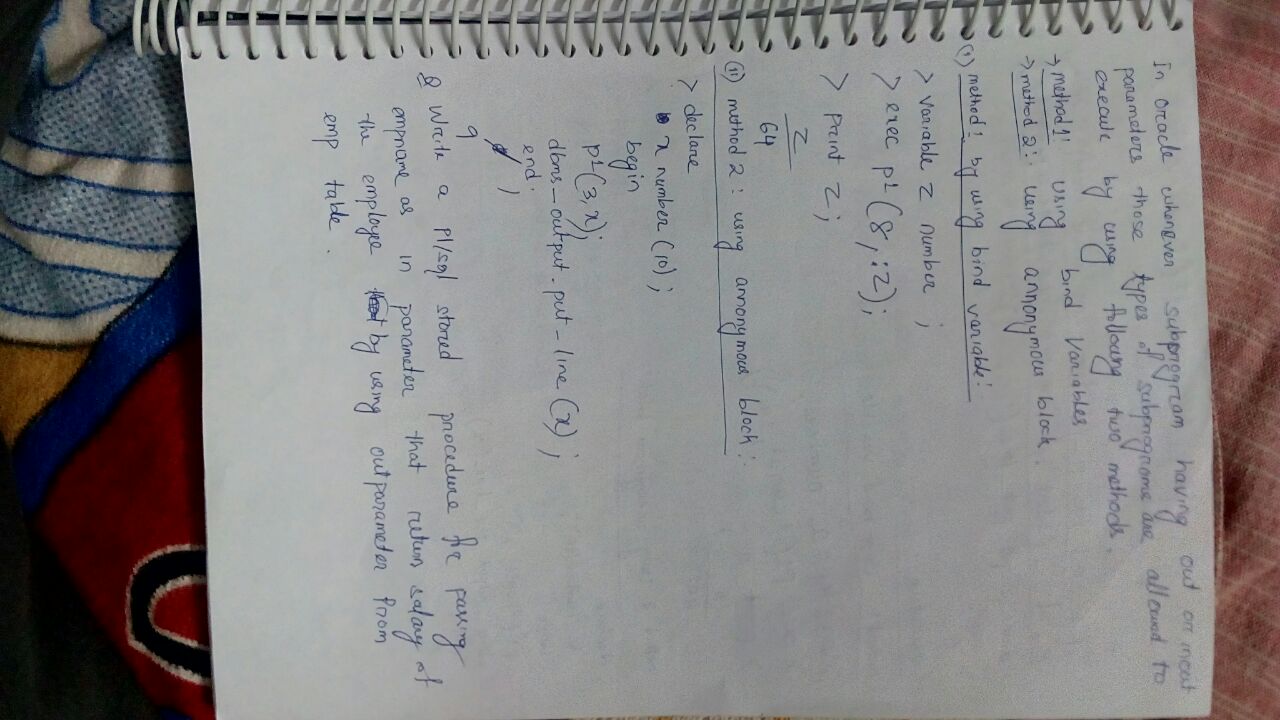 In oracle whenever subprogram having out or inout
parameters those types of subprograms are allowed to
execute by using following two methods.
→ method 1: using bind variables
→ method 2: using annonymous block.
(i) method 1 by using bind variable:
> variable z number ;
> exec p1 (8, :z);
> print z;
z
64
(ii) method 2 : using annonymous block :
> declare
x number (10) ;
begin
p1(3, x);
dbms_output.put_line (x) ;
end ;
/
9
Q Write a Pl/sql stored procedure for passing
empname as in parameter that return salary of
the employee by using outparameter from
emp table .